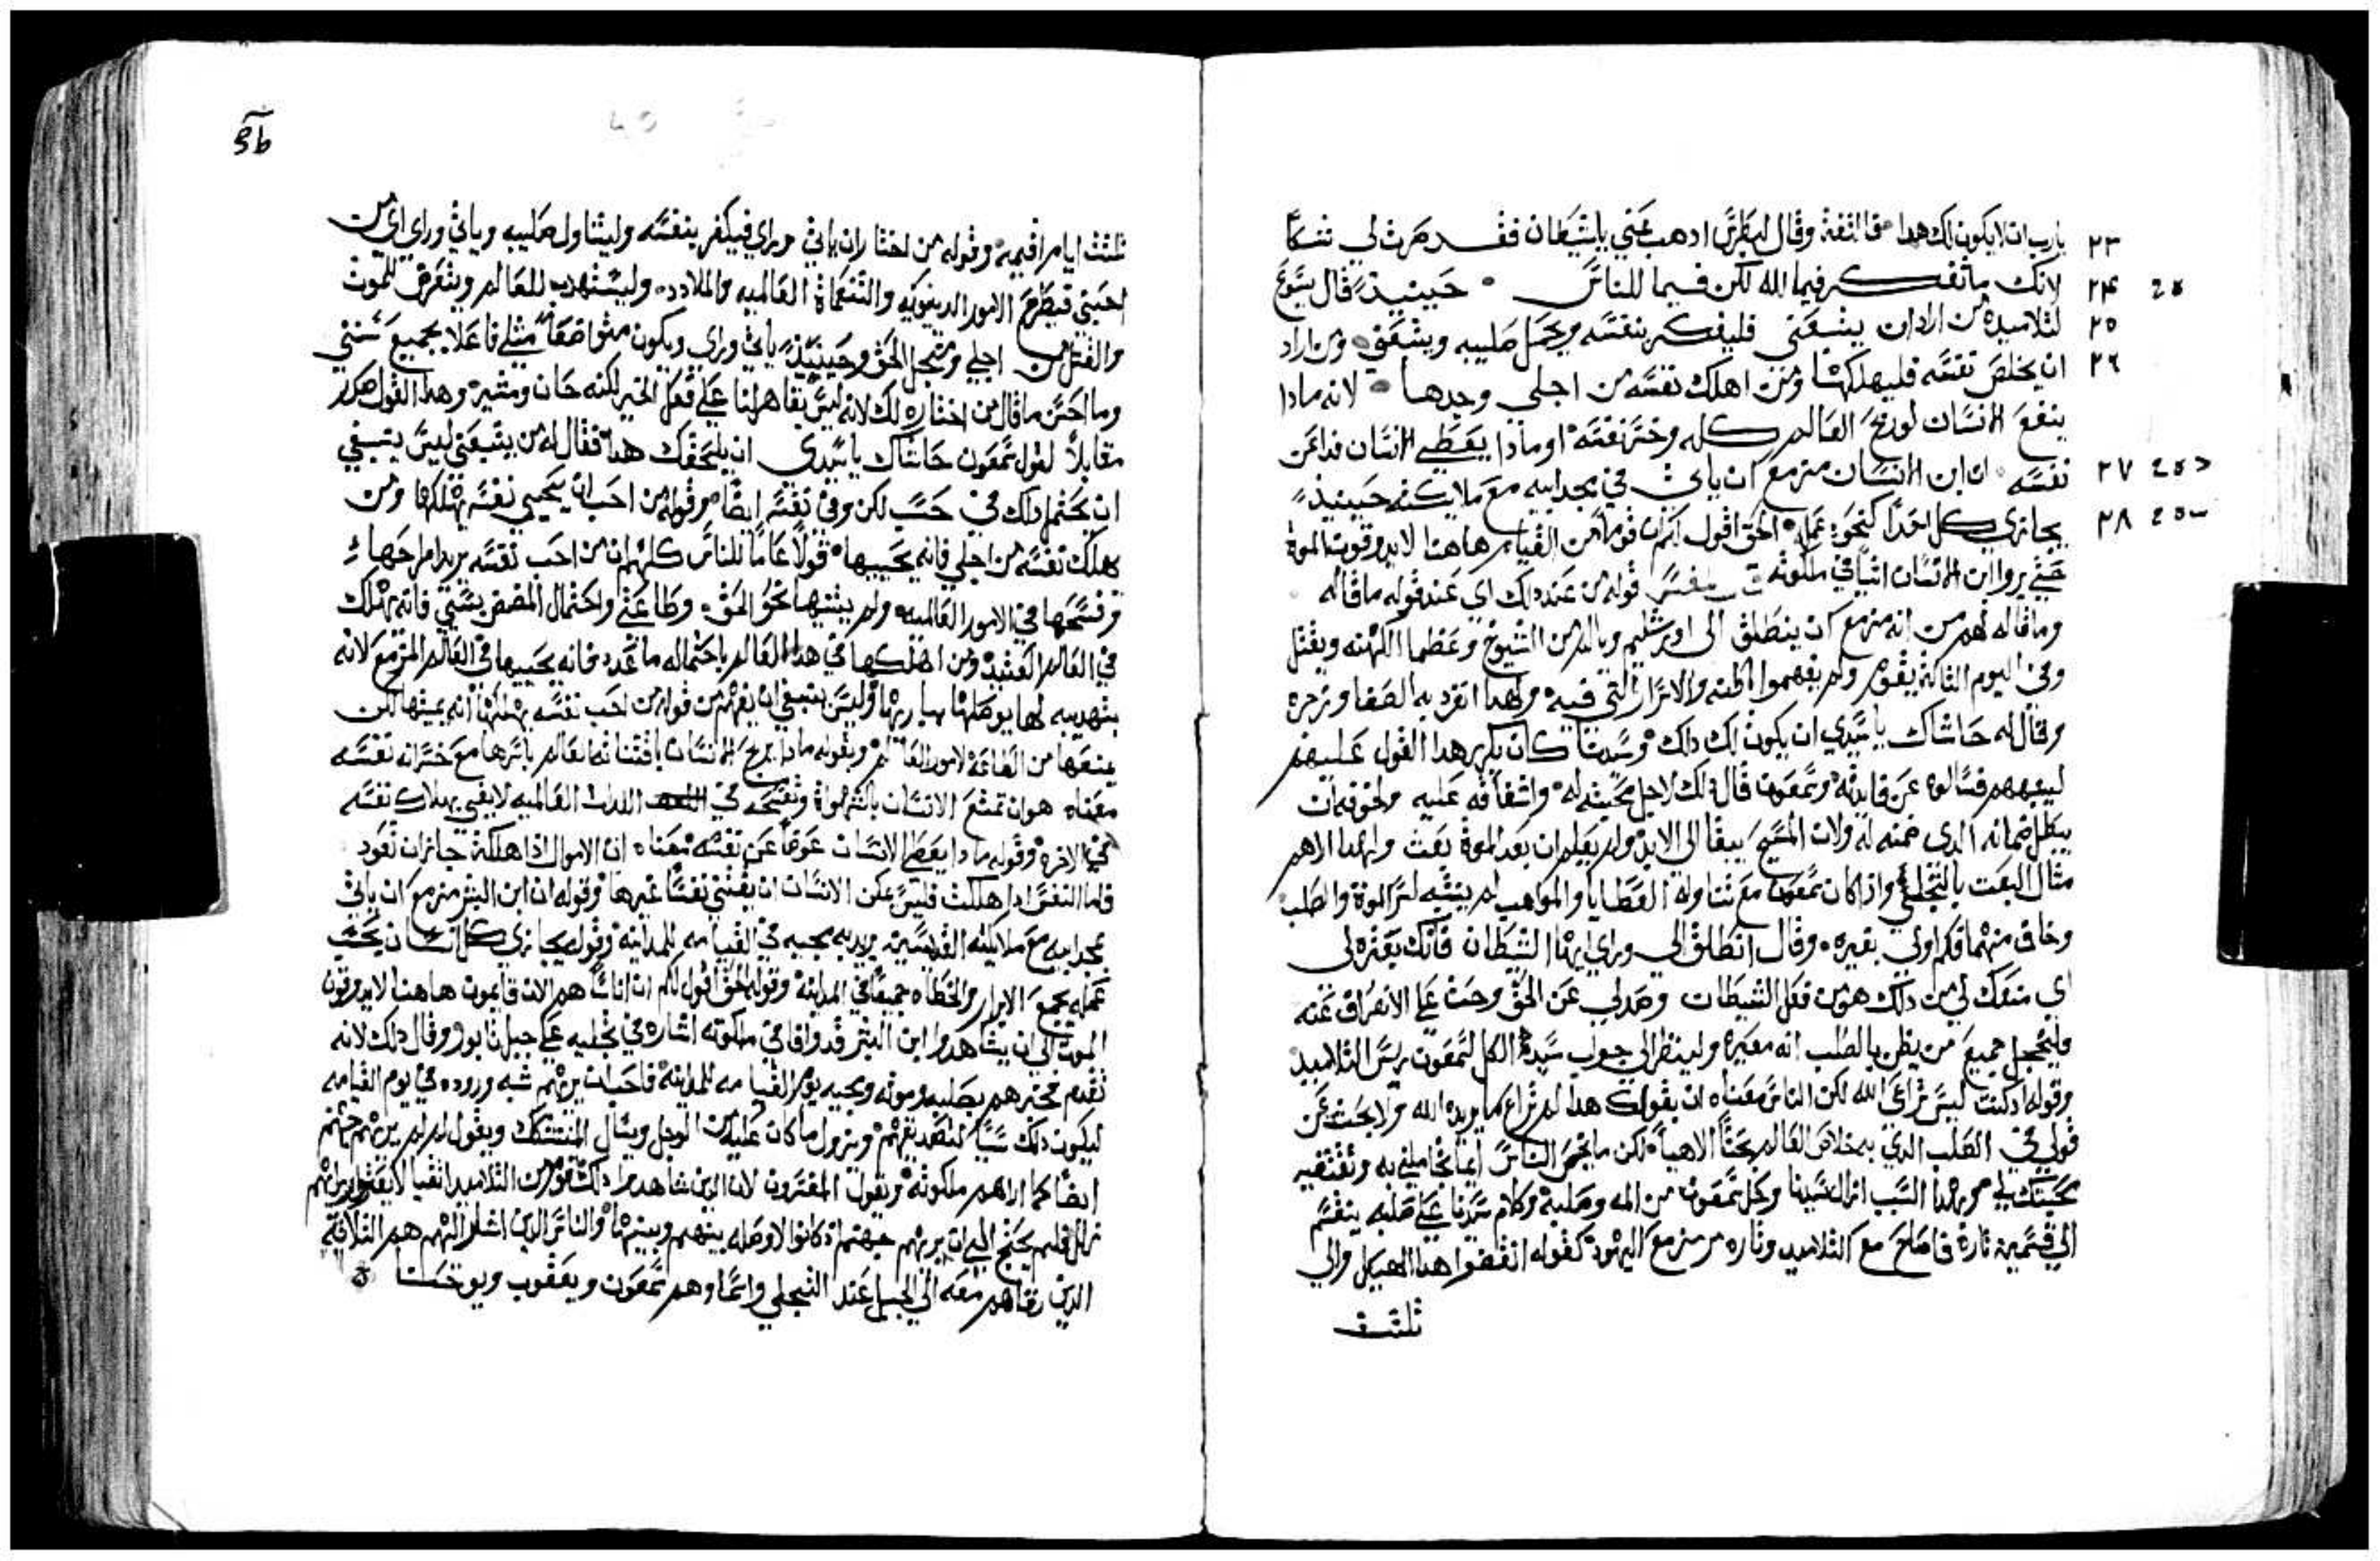 ٢٣ يارب ان لا يكون لك هدا فالتفت وقال لبطرس ادهب عني ياشيطان فقد صرت لي شكا
٢٤ لانك ما تفكر فيما لله لكن فيما للناس حينيذ قال يسوع
٢٥ لتلاميده من اراد ان يتبعني فليفكر بنفسه ويحمل صليبه ويتبعني ومن اراد
٢٦ ان يخلص نفسه فليهلكها ومن اهلك نفسه من اجلي وجدها لانه مادا
ينفع الانسان لو ربح العالم كله وخسر نفسه او مادا يعطي الانسان فدا عن
٢٧ نفسه ان ابن الانسان مزمع ان ياتي في مجد ابيه مع ملايكته حينيذ
٢٨ يجازي كل احدا كنحو عمله الحق اقول لكم ان قوما من القيام هاهنا لا يدوقون الموت
حتي يروا ابن الانسان اتيا في ملكوته تفسير قوله من عند دلك اي عند قوله ما قاله
وما قاله لهم من انه مزمع ان ينطلق الى اورشليم ويالم من الشيوخ وعظما الكهنه ويقتل
وفي اليوم الثالث يقوم ولم يفهموا والاسرار التي فيه ولهدا انفرد به الصفا وزجره
وقال له حاشاك ياسيدي ان يكون لك دلك وسيدنا كان يكرر هدا القول عليهم
ليفهمهم فسالوه عن فايدته وشمعون قال دلك لاجل محبته له واشفاقه عليه ولخوفه ان
يبطل ضمانه الدي ضمنه له ولان المسيح يبقا الى الابد ولم يعلم ان بعد الموت بعث ولهدا اراهم
مثال البعث بالتجلي واذا كان شمعون مع تناوله العطايا والمواهب لم يتنبه لسر الموت والصلب
وخاف منهما فكم اولي بغيره وقال انطلق الى وراي ايها الشيطان فانك بعثره لي
اي منعك لي من دلك هو من فعل الشيطان وصد لي عن الحق وحث على الانصراف عنه
وليخجل جميع من يظن بالصلب انه معيره ولينظر الى جواب سيد الكل لشمعون ريس التلاميد
وقوله ادكنت ليس تراعي الله لكن الناس معناه ان بقولك هدا لم تراع ما يريده الله ولا بحثت عن
قولي في الصلب الدي به خلاص العالم بحثا الاهيا لكن ما يخص الناس
محبتك لي وبهدا السبب ازال سيدنا وجل شمعون من المه وصلبه وكلام سيدنا على صلبه ينقسم
الى قسمين تارة فاصلح مع التلاميد وتاره مرمز مع اليهود كقوله انقضوا هدا الهيكل والي
ثلثت
ثلثت ايام اقيمه وقوله من اختار ان ياتي وراي فيكفر بنفسه وليتناول صليبه وياتي وراي اي من
احبني فيطرح الامور الدينويه والتنعمات العالميه والملادد وليستهدف للعالم ويتعرض للموت
والقتل من اجلي ومن اجل الحق وحينيذ ياتي وراي ويكون متواضعا مثلي فاعلا بجميع سنني
وما احسن ما قال من اختار دلك لانه ليس بقاهر لنا على فعل الخير لكنه حان ومشير وهدا القول صدر
مقابلا لقول شمعون حاشاك ياسيدي ان يلحقك هدا فقال له من يتبعني ليس ينبغي
ان يحتمل دلك في حسب لكن وفي نفسه ايضا وقوله من احب ان يحيي نفسه يهلكها ومن
هلك نفسه من اجلي فانه يحييها قولا عاما للناس كلهم ان من احب نفسه يريد امراجها
وفسحها في الامور العالميه ولم يثنيها نحو الحق وطاعتي واحتمال المضض بسببي فانه يهلك
في العالم العتيد ومن اهلكها في هدا العالم باحتماله ما عدد فانه يحييها في العالم المزمع لانه
بتهديبه لها يوصلها بباريها وليس ينبغي ان يفهم من قوله من احب نفسه يهلكها انه يميتها لكن
يمنعها من الطاعه لامور العالم وبقوله مادا يربح الانسان باقتنا نه العالم باسرها مع خسرانه نفسه
معناه هو ان تمتع الانسان بالشهوات وتفسحه في اللدات العالميه لا يفي بهلاك نفسه
في الاخره وقوله مادا يعطي الانسان عوضا عن نفسه معناه ان الاموال اذا هلكت جايز ان تعود
فاما النفس ادا هلكت فليس يمكن الانسان ان يقتني نفسا غيرها وقوله ان ابن البشر مزمع ان ياتي
بمجد ابيه مع ملايكته القديسين يريد به مجيه في القيامه للمداينه وقوله يجازي كل انسان بحسب
عمله يجمع الابرار والخطاه جميعا في المداينه وقوله الحق اقول لكم ان اناسا هم الان قايمون هاهنا لا يدوقون
الموت الى ان يشاهدوا ابن البشر قد وافا في ملكوته اشاره في تجليه على جبل تابور وقال دلك لانه
تقدم فخبرهم بصلبه وموته ومجيه يوم القيامه للمداينه فاحب ان يريهم شبه وروده في يوم القيامه
ليكون دلك سببا لتصديقهم ويزول ما كان عليه من الوجل ويسال المتشكك ويقول لم لم يريهم جهنم
ايضا كما اراهم ملكوته ويقول المفسرون لان الدين شاهدوا دلك قوم من التلاميد اتقيا
فلم يحتج الى ان يريهم جهنم اذ كانوا لا وصله بينهم وبينها والناس الدين اشار اليهم هم الثلاثة
الدين رقاهم معه الى الجبل عند التجلي واسما وهم شمعون ويعقوب ويوحنا